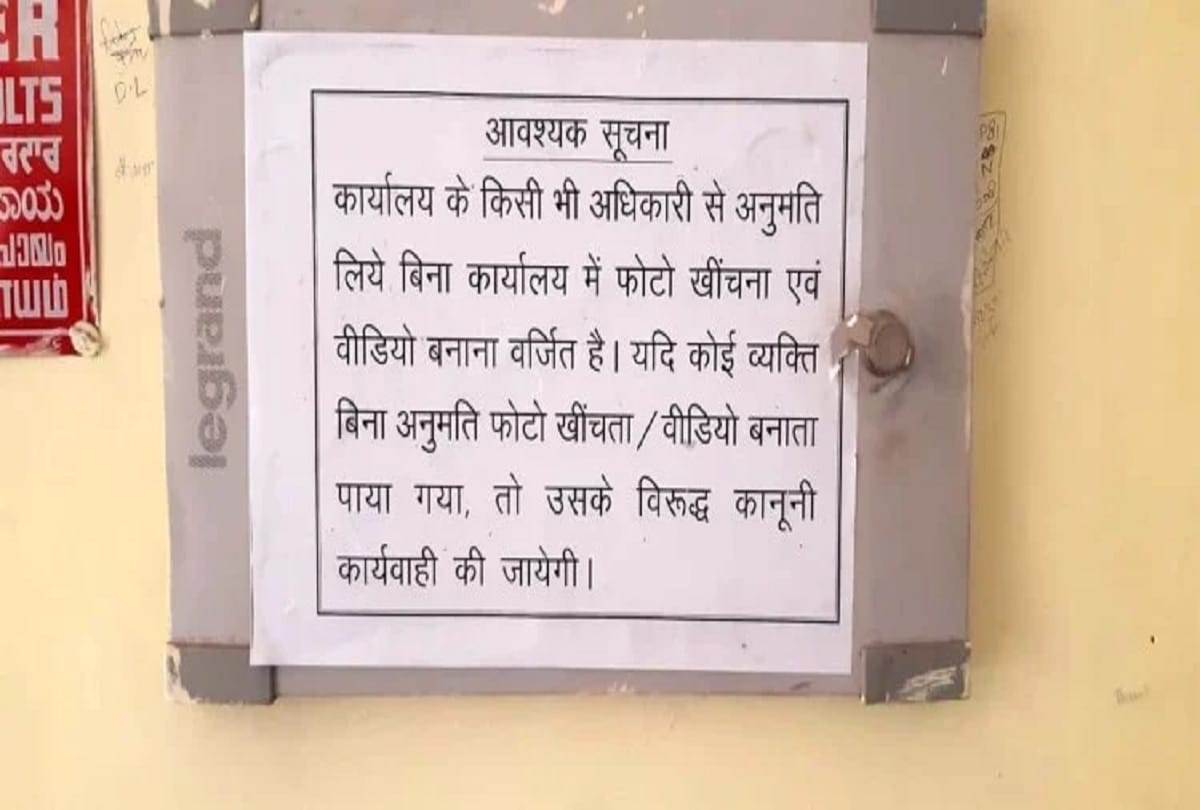 आवश्यक सूचना
कार्यालय के किसी भी अधिकारी से अनुमति
लिये बिना कार्यालय में फोटो खींचना एवं
वीडियो बनाना वर्जित है। यदि कोई व्यक्ति
बिना अनुमति फोटो खींचता/वीडियो बनाता
पाया गया, तो उसके विरूद्ध कानूनी
कार्यवाही की जायेगी।
legrand
ER
ULTS
D.L